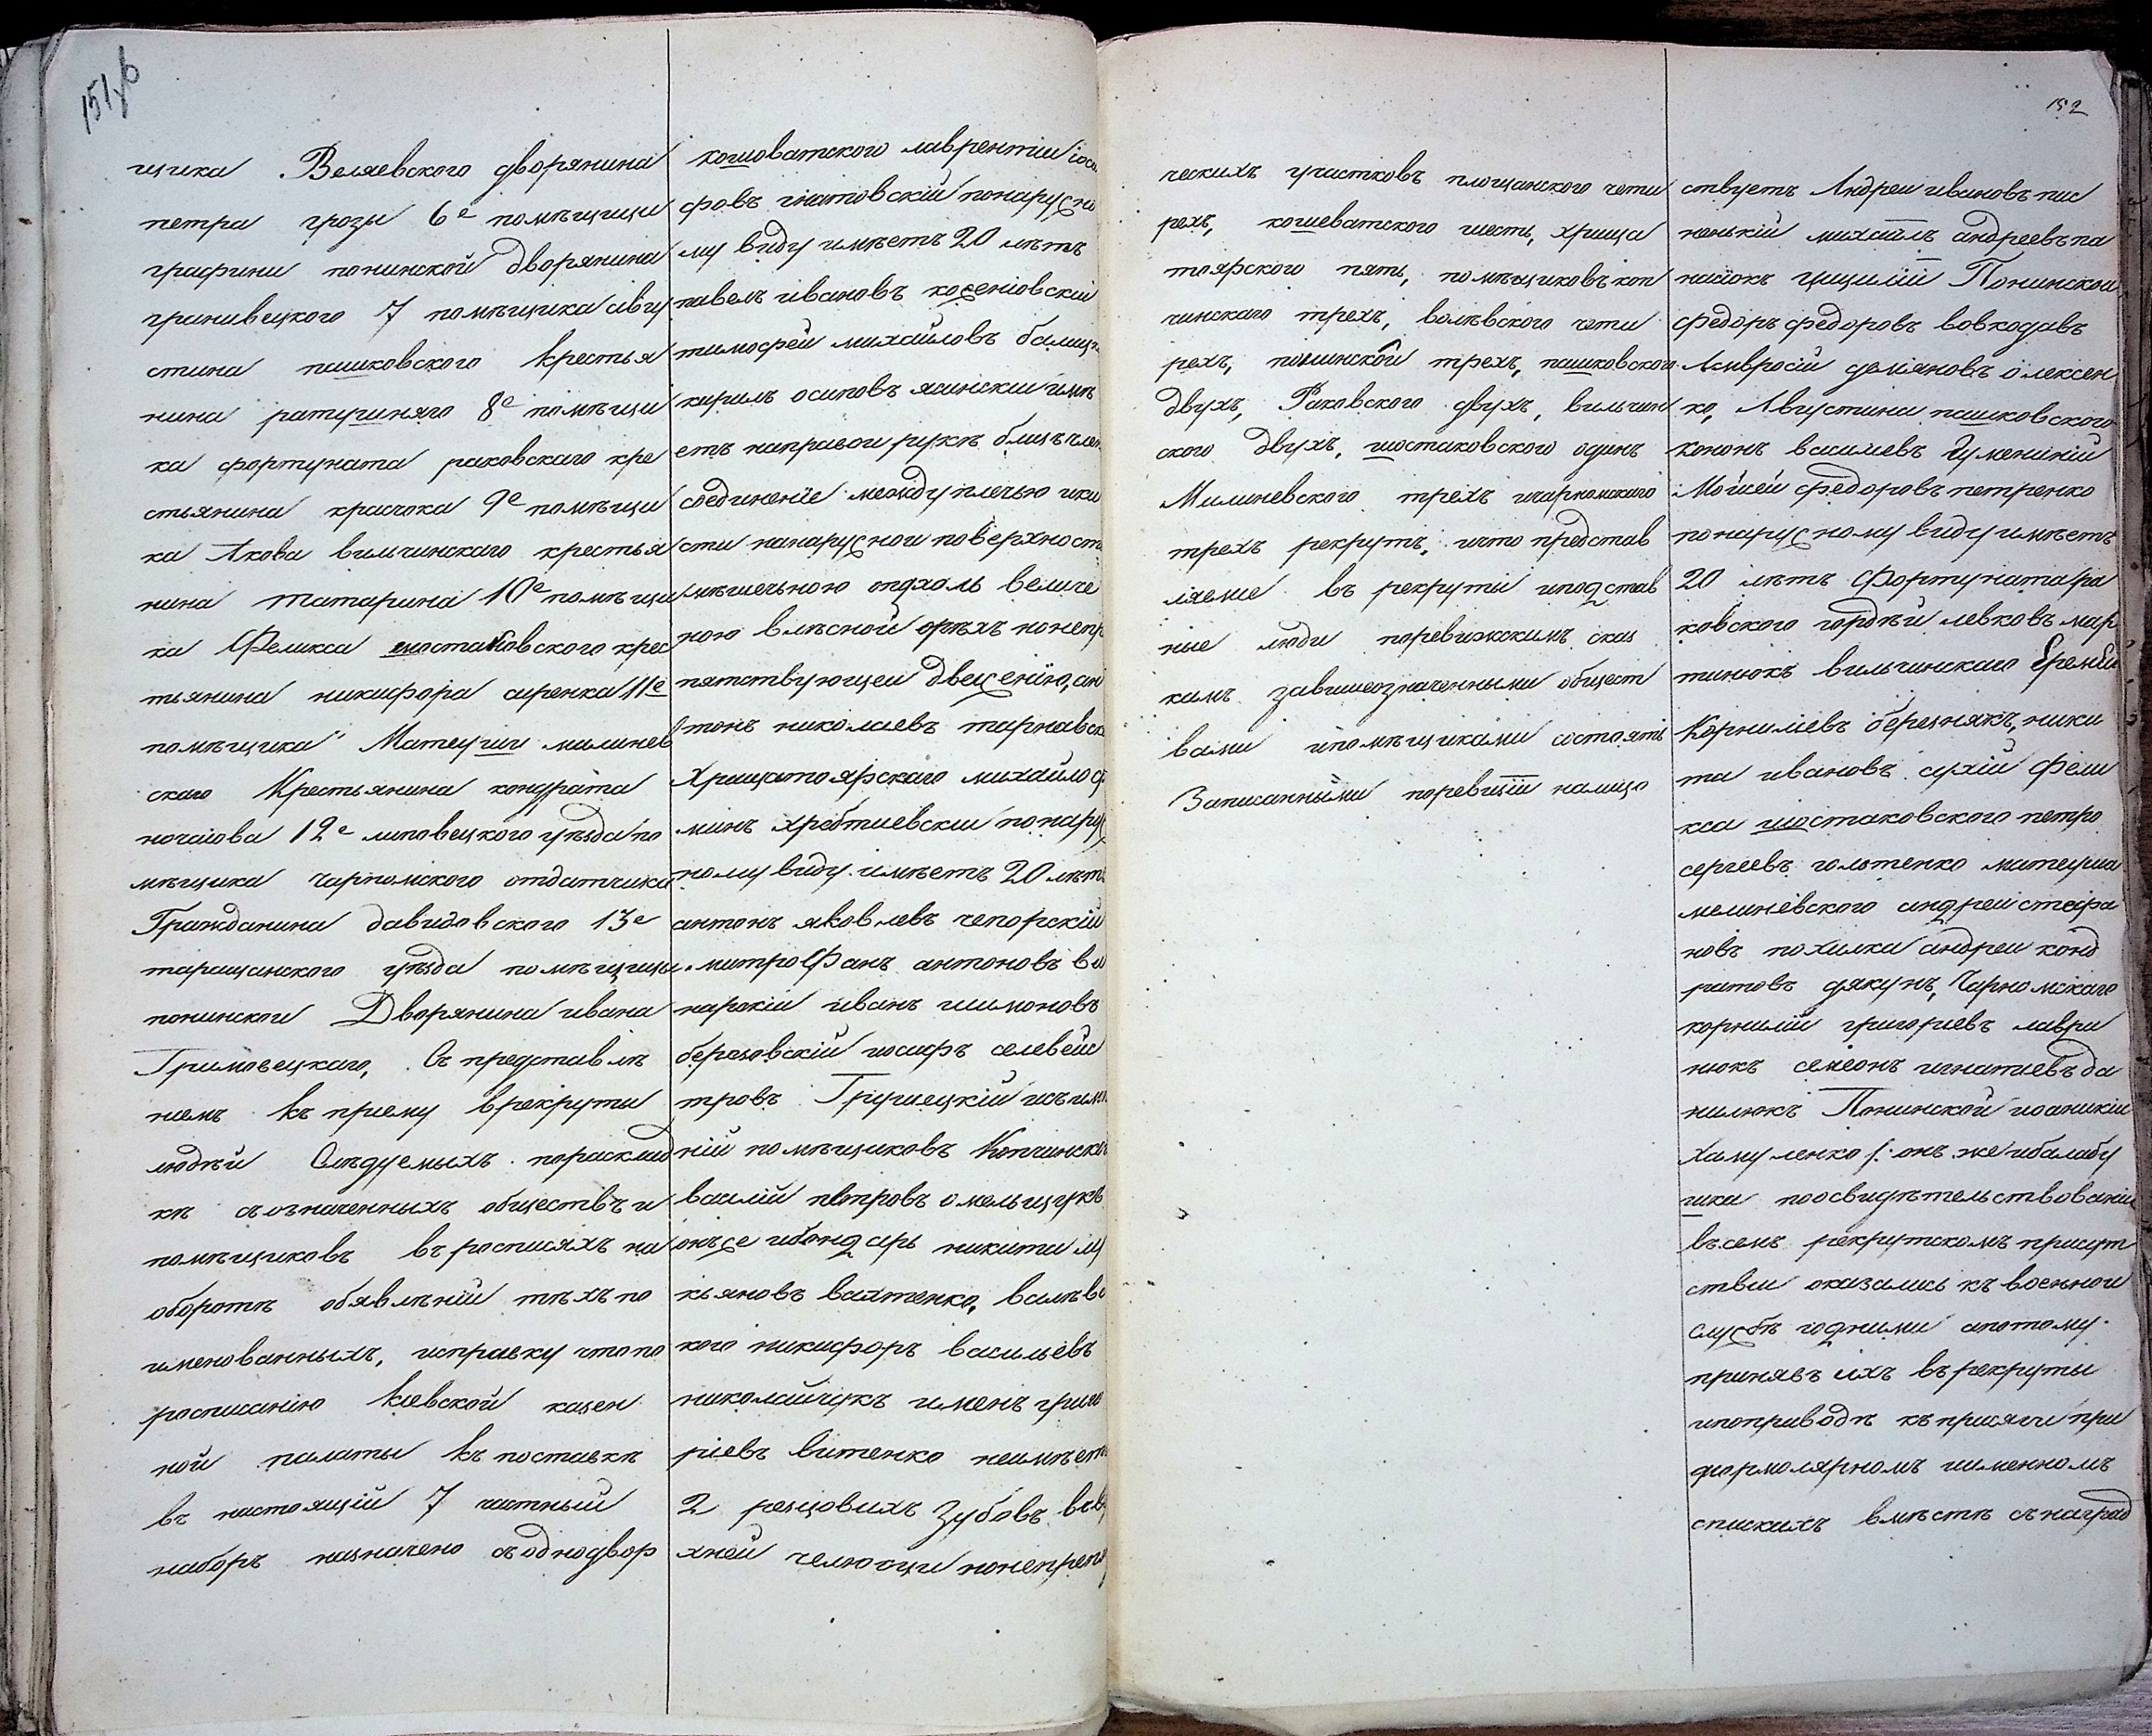 151 об
щика Веляевского дворянина
петра грозы 6е помѣщици
графини понинской дворянина
гранивецкого 7 помѣщика авгу
стина пашковского крестья
нина ратушняго 8е помѣщи
ка фортуната раковскаго кре
стьянина красюка 9е помѣщи
ка Якова вильчинскаго крестья
нина татарина 10е помѣщи
ка Феликса шостаковского крес
тьянина никифора сиренка 11е
помѣщика Матеуши милинев
скаго Крестьянина кондрата
ночаіова 12е липовецкого уѣзда по
мѣщика чарномского отдатчика
Гражданина давидовского 13е
таращанского уѣзда помѣщици
понинской Дворянина ивана
Гримовецкаго, О представлѣ
ніемъ къ приему врекруты
людѣй Слѣдуемыхъ пораскалад
кѣ съозначенныхъ обществъ и
помѣщиковъ въ росписяхъ на
оборотѣ обявлѣній тѣхъ по
именованныхъ, исправку что по
росписанію Кіевской казен
ной палаты къ поставкѣ
въ настоящій 7 частный
наборъ назначено съ однодвор
кошоватского лаврентій іоси
фовъ гнатовскій понаружно
му виду имѣетъ 20 лѣтъ
павелъ ивановъ коженіовскій
тимофей михайловъ балиц
кирилъ осиповъ ясинскій имѣ
етъ направой рукѣ близъ член
соединеніе между плечью и ки
сти нанаружной поверхности
мѣшечьною опухоль величе
ною влѣсной орѣхъ нонепр
пятствующей движенію, ан
тонъ николаевъ тарнавск
Хрищатоярскаго михайло ф
минъ хребтиевскій понаруж
ному виду имѣетъ 20 лѣтъ
антонъ яковлевъ чепорскій
митрофанъ антоновъ ви
нарскій иванъ шимоновъ
березовскій иосифъ селевей
тровъ Грушецкій изъ имѣ
ній помѣщиковъ Копчинско
василій петровъ омельщукъ
онъже ибондарь никита лу
кьяновъ вахтенко, валѣвс
кого никифоръ васильевъ
николайчукъ именъ григо
ріевъ витенко неимѣетъ
2 рѣзцовихъ зубовъ въвѣ
хней челюсти нонепрепя
152
ческихъ участковъ площанского чети
рехъ, кошеватского шесть, хреща
тоярского пять, помѣщиковъ коп
чинскаго трехъ, валѣвского чети
рехъ, понинской трехъ, пашковского
двухъ, Раковского двухъ, вильчин
ского двухъ, шостаковского одинъ
Милиневского трехъ ичарномскаго
трехъ рекрутъ, ичто представ
ляеміе въ рекруты иподстав
ніе люди поревижскимъ сказ
камъ завишеозначенными общест
вами ипомѣщиками состоятъ
Записанными поревизіи налицо
ствуетъ Андрей ивановъ пис
ненькій михаилъ андреевъ па
насюкъ цициліи Понинской
федоръ федоровъ вовкодавъ
Амвросій деміяновъ олексен
ко, Августина пашковского
кононъ василиевъ Гуменній
Мойсей федоровъ петренко
понаружному виду имѣетъ
20 лѣтъ Фортуната ра
ковского гордѣй левковъ мар
тинюкъ вильчинскаго Еремѣй
Корнилиевъ березнякъ, ники
та ивановъ сухій Фели
кса шостаковского петро
сергеевъ гольтенко матеуша
мелиневского андрей стефа
новъ похилка андрей конд
ратовъ дякунъ, Чарномскаго
корнилій григориевъ лаври
нюкъ семеонъ игнатиевъ да
нилюкъ Понинской иоаникій
Хамуленко /: онъ же ибалабу
шка поосвидѣтельствованіи
въ семъ рекрутскомъ присут
ствіи оказались къ военной
службѣ годними апотому
принявъ ихъ въ рекруты
ипоприводѣ къ присягѣ при
формолярномъ именномъ
спискихъ вмѣстѣ съ наград